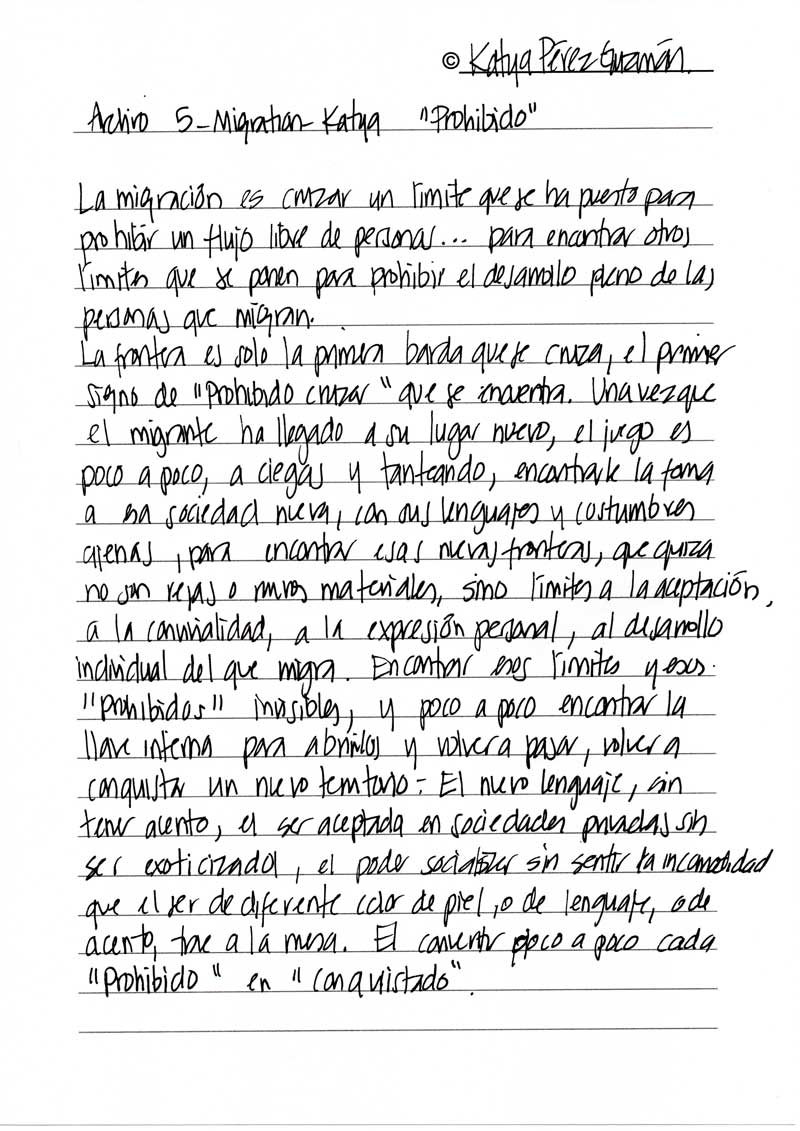 © Katya Pérez Guzmán.
Archivo 5-Migration-Katya "Prohibido"
La migración es cruzar un límite que se ha puesto para
prohibir un flujo libre de personas... para encontrar otros
límites que se ponen para prohibir el desarrollo pleno de las
personas que migran.
La frontera es solo la primera barda que se cruza, el primer
signo de "Prohibido cruzar" que se encuentra. Una vez que
el migrante ha llegado a su lugar nuevo, el juego es
poco a poco, a ciegas y tanteando, encontrarle la forma
a esa sociedad nueva, con sus lenguajes y costumbres
ajenas, para encontrar esas nuevas fronteras, que quizá
no son rejas o muros materiales, sino límites a la aceptación,
a la convivialidad, a la expresión personal, al desarrollo
individual del que migra. Encontrar esos límites y esos
"prohibidos" invisibles, y poco a poco encontrar la
llave interna para abrirlos y volver a pasar, volver a
conquistar un nuevo territorio: El nuevo lenguaje, sin
tener acento, el ser aceptada en sociedades privadas sin
ser exotizada, el poder socializar sin sentir la incomodidad
que el ser de diferente color de piel, o de lenguaje, o de
acento, trae a la mesa. El convertir poco a poco cada
"Prohibido" en "conquistado".